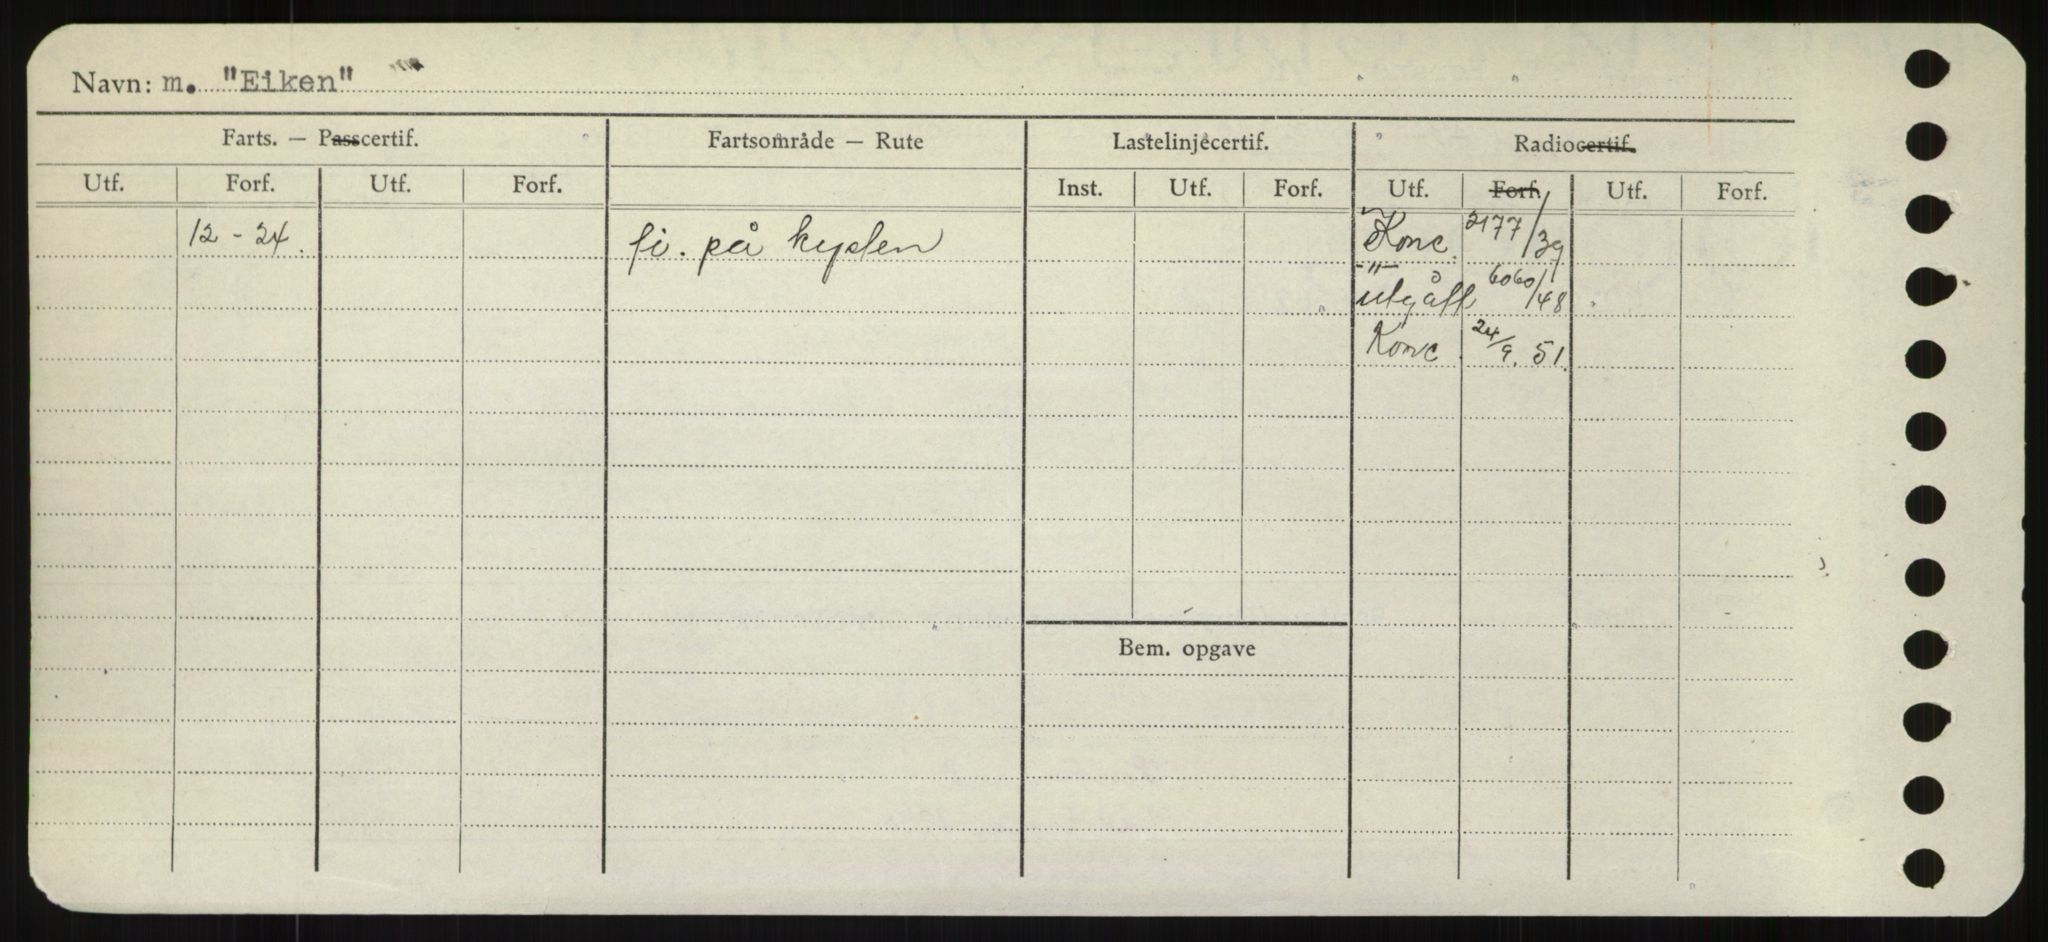 Navn: m. "Eiken"
Farts. — Passcertif. Fartsområde — Rute Lastelinjecertif. Radiocertif.
Utf. Forf. Utf. Forf. Inst. Utf. Forf. Utf. Forf. Utf. Forf.
12 - 24. fi. på kysten Konc. 2177/39
-"- utgått 6060/48
Konc. 24/9. 51.
Bem. opgave